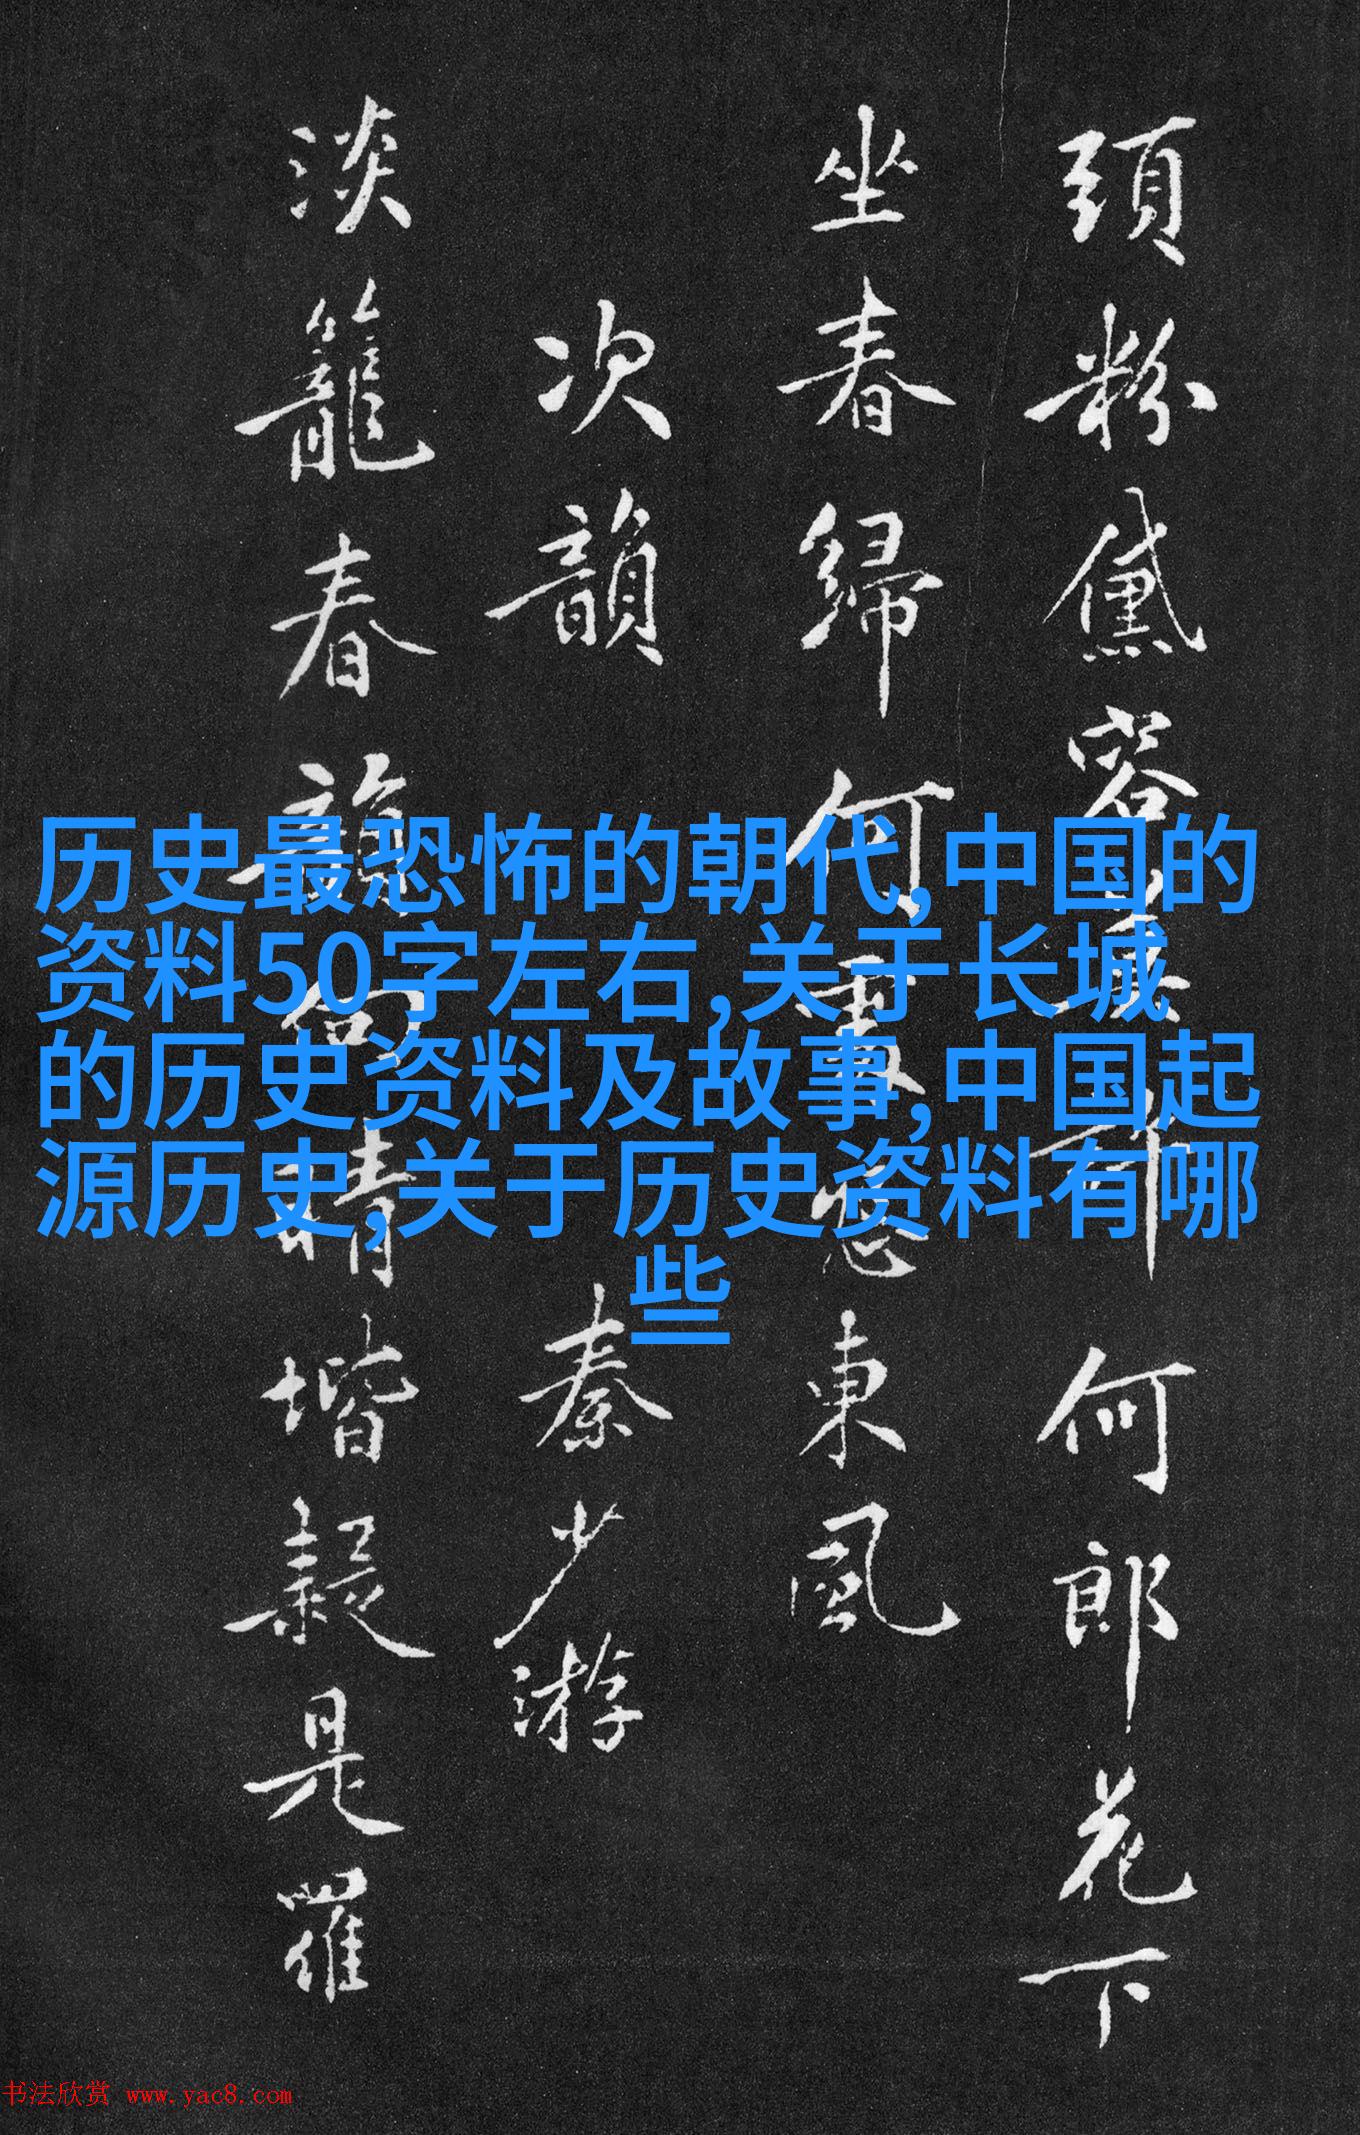 頭粉黛容 何郎花下
坐春歸何 東風
次韻 秦少游
淡籠春 晴堦疑是羅
历史最恐怖的朝代,中国的
资料50字左右,关于长城
的历史资料及故事,中国起
源历史,关于历史资料有哪
些
书法欣赏 www.yac8.com